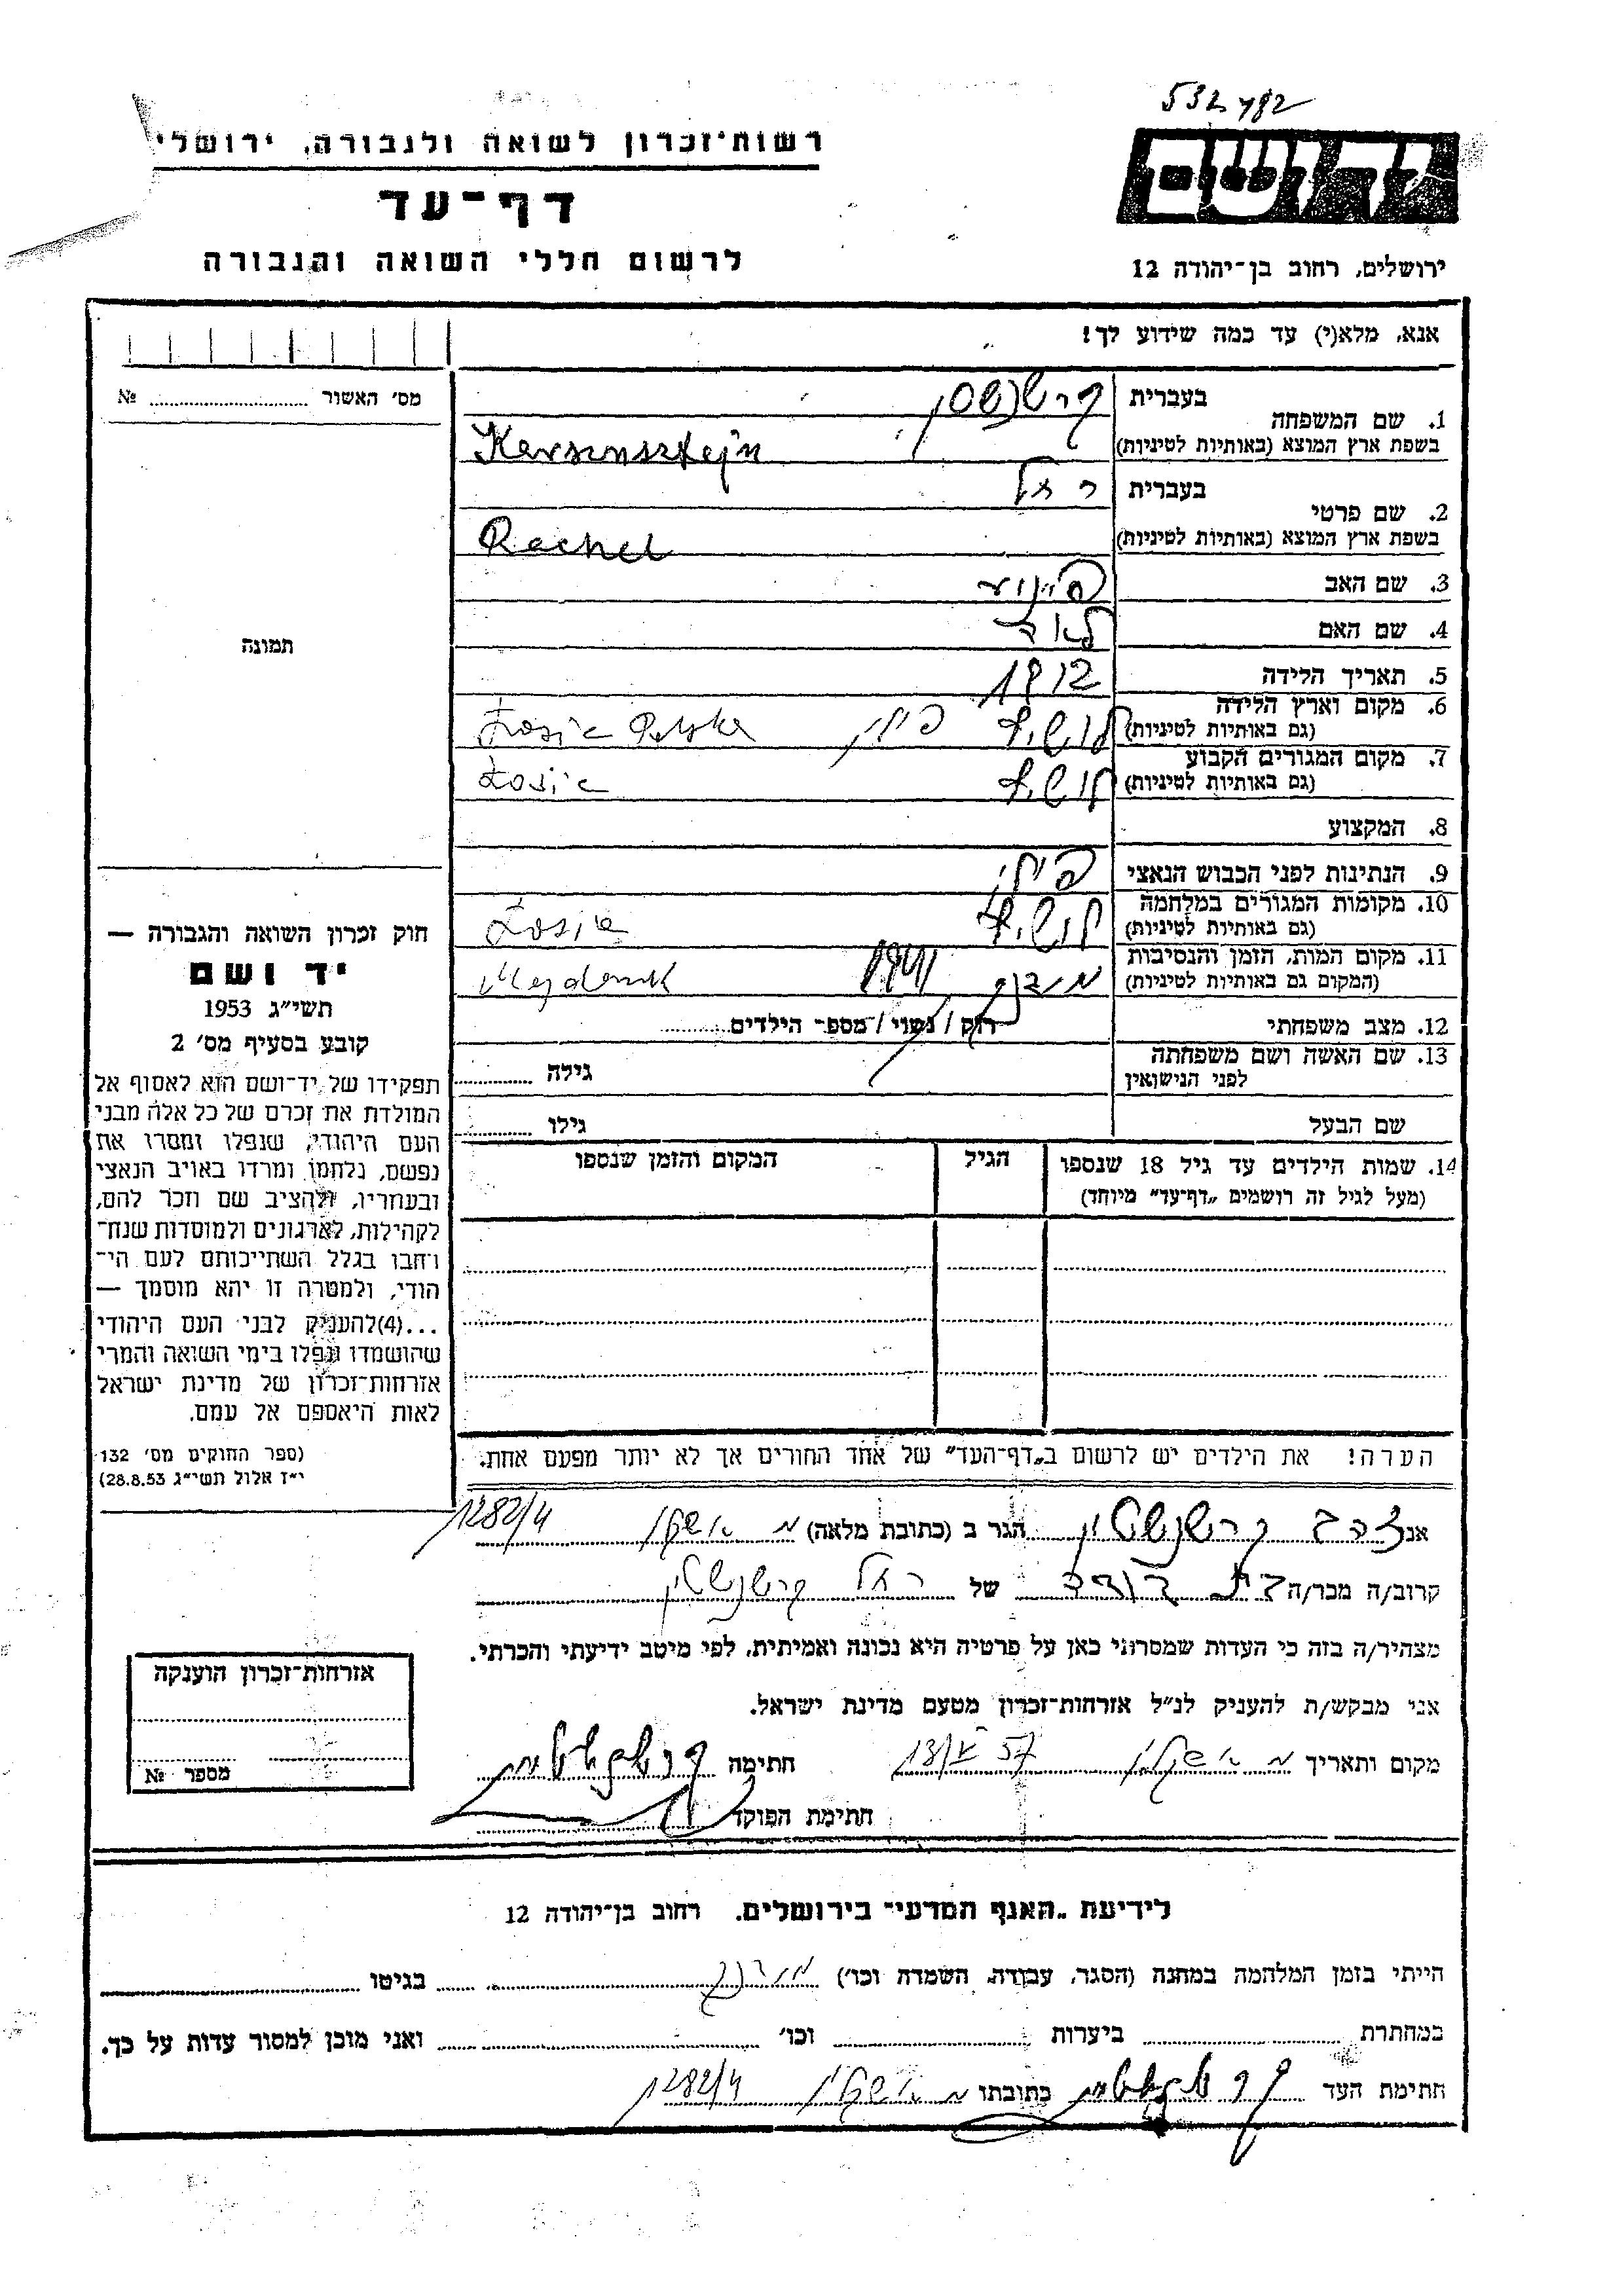 532482
רשות־זכרון לשואה ולגבורה, ירושלי
דף־עד
לרשום חללי השואה והגבורה
יד ושם
ירושלים, רחוב בן־יהודה 12
אנא, מלא(י) עד כמה שידוע לך!
מס׳ האשור №
1. שם המשפחה
בעברית
בשפת ארץ המוצא (באותיות לטיניות)
Kersensztejn
2. שם פרטי
בעברית רחל
בשפת ארץ המוצא (באותיות לטיניות) Rachel
3. שם האב
4. שם האם
5. תאריך הלידה 1912
6. מקום וארץ הלידה
(גם באותיות לטיניות) לושיץ פולין Łosice Polska
7. מקום המגורים הקבוע
(גם באותיות לטיניות) לושיץ Łosice
8. המקצוע
9. הנתינות לפני הכבוש הנאצי פולין
10. מקומות המגורים במלחמה
(גם באותיות לטיניות) לושיץ Łosice
11. מקום המות, הזמן והנסיבות
(המקום גם באותיות לטיניות) מידנק 1941 Majdanek
12. מצב משפחתי רוק / נשוי / מספר הילדים
13. שם האשה ושם משפחתה
לפני הנישואין
גילה
שם הבעל
גילו
14. שמות הילדים עד גיל 18 שנספו
(מעל לגיל זה רושמים „דף־עד״ מיוחד)
הגיל
המקום והזמן שנספו
תמונה
חוק זכרון השואה והגבורה —
יד ושם
תשי״ג 1953
קובע בסעיף מס׳ 2
תפקידו של יד־ושם הוא לאסוף אל
המולדת את זכרם של כל אלה מבני
העם היהודי, שנפלו ומסרו את
נפשם, נלחמו ומרדו באויב הנאצי
ובעוזריו, ולהציב שם וזכר להם,
לקהילות, לארגונים ולמוסדות שנח־
רבו בגלל השתייכותם לעם הי־
הודי, ולמטרה זו יהא מוסמך —
...(4) להעניק לבני העם היהודי
שהושמדו ונפלו בימי השואה והמרי
אזרחות־זכרון של מדינת ישראל
לאות היאספם אל עמם.
(ספר החוקים מס׳ 132
י״ז אלול תשי״ג 28.8.53)
הערה! את הילדים יש לרשום ב„דף־העד״ של אחד ההורים אך לא יותר מפעם אחת.
אני קרשנשטין הגר ב (כתובת מלאה) מ אשקלון 1282/4
קרוב/ה מכר/ה בת דודה של רחל קרשנשטין
מצהיר/ה בזה כי העדות שמסרתי כאן על פרטיה היא נכונה ואמיתית, לפי מיטב ידיעתי והכרתי.
אני מבקש/ת להעניק לנ״ל אזרחות־זכרון מטעם מדינת ישראל.
מקום ותאריך מ אשקלון 57 חתימה
חתימת הפוקד
אזרחות־זכרון הוענקה
מספר №
לידיעת „האגף המדעי״ בירושלים, רחוב בן־יהודה 12
הייתי בזמן המלחמה במחנה (הסגר, עבודה, השמדה וכו׳) מידנק בגיטו
במחתרת ביערות וכו׳ ואני מוכן למסור עדות על כך.
חתימת העד כתובתו מ אשקלון 1282/4